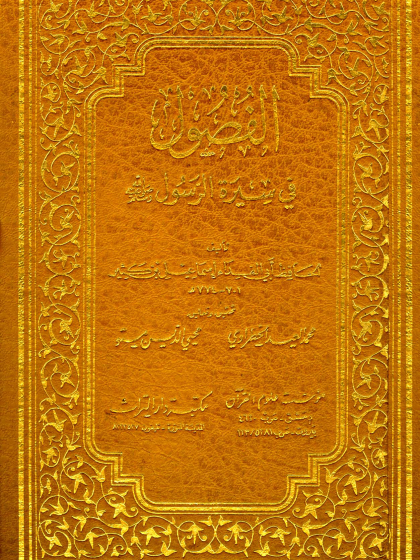 الفصول
في سيرة الرسول ﷺ
تأليف
الحافظ أبي الفداء إسماعيل بن كثير
٧٠١ - ٧٧٤ هـ
تحقيق وتعليق
محمد العيد الخطراوي محيي الدين مستو
مؤسسة علوم القرآن مكتبة دار التراث
دمشق
المدينة المنورة
بيروت